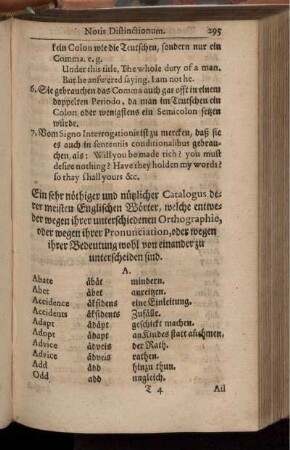 Notis Distinctionum. 295
kein Colon wie die Teutschen, sondern nur ein
Comma. e. g.
Under this title, The whole duty of a man.
But he answered saying. I am not he.
6. Sie gebrauchen das Comma auch gar offt in einem
doppelten Periodo, da man im Teutschen ein
Colon oder wenigstens ein Semicolon setzen
würde.
7. Vom Signo Interrogationis ist zu mercken, daß sie
es auch in sententiis conditionalibus gebrau-
chen, als: Will you be made rich? you must
desire nothing? Have they holden my words?
so thay shall yours &c.
Ein sehr nöthiger und nützlicher Catalogus de-
rer meisten Englischen Wörter, welche entwe-
der wegen ihrer unterschiedenen Orthographie,
oder wegen ihrer Pronunciation, oder wegen
ihrer Bedeutung wohl von einander zu
unterscheiden sind.
A.
Abate äbät mindern.
Abet äbet anreitzen.
Accidence äksidens eine Einleitung.
Accidents äksidents Zufälle.
Adapt ädäpt geschickt machen.
Adopt ädäpt an Kindes statt añehmen.
Advice ädveis der Rath.
Advice ädveis rathen.
Add ädd hinzu thun.
Odd add ungleich.
T 4 Ail